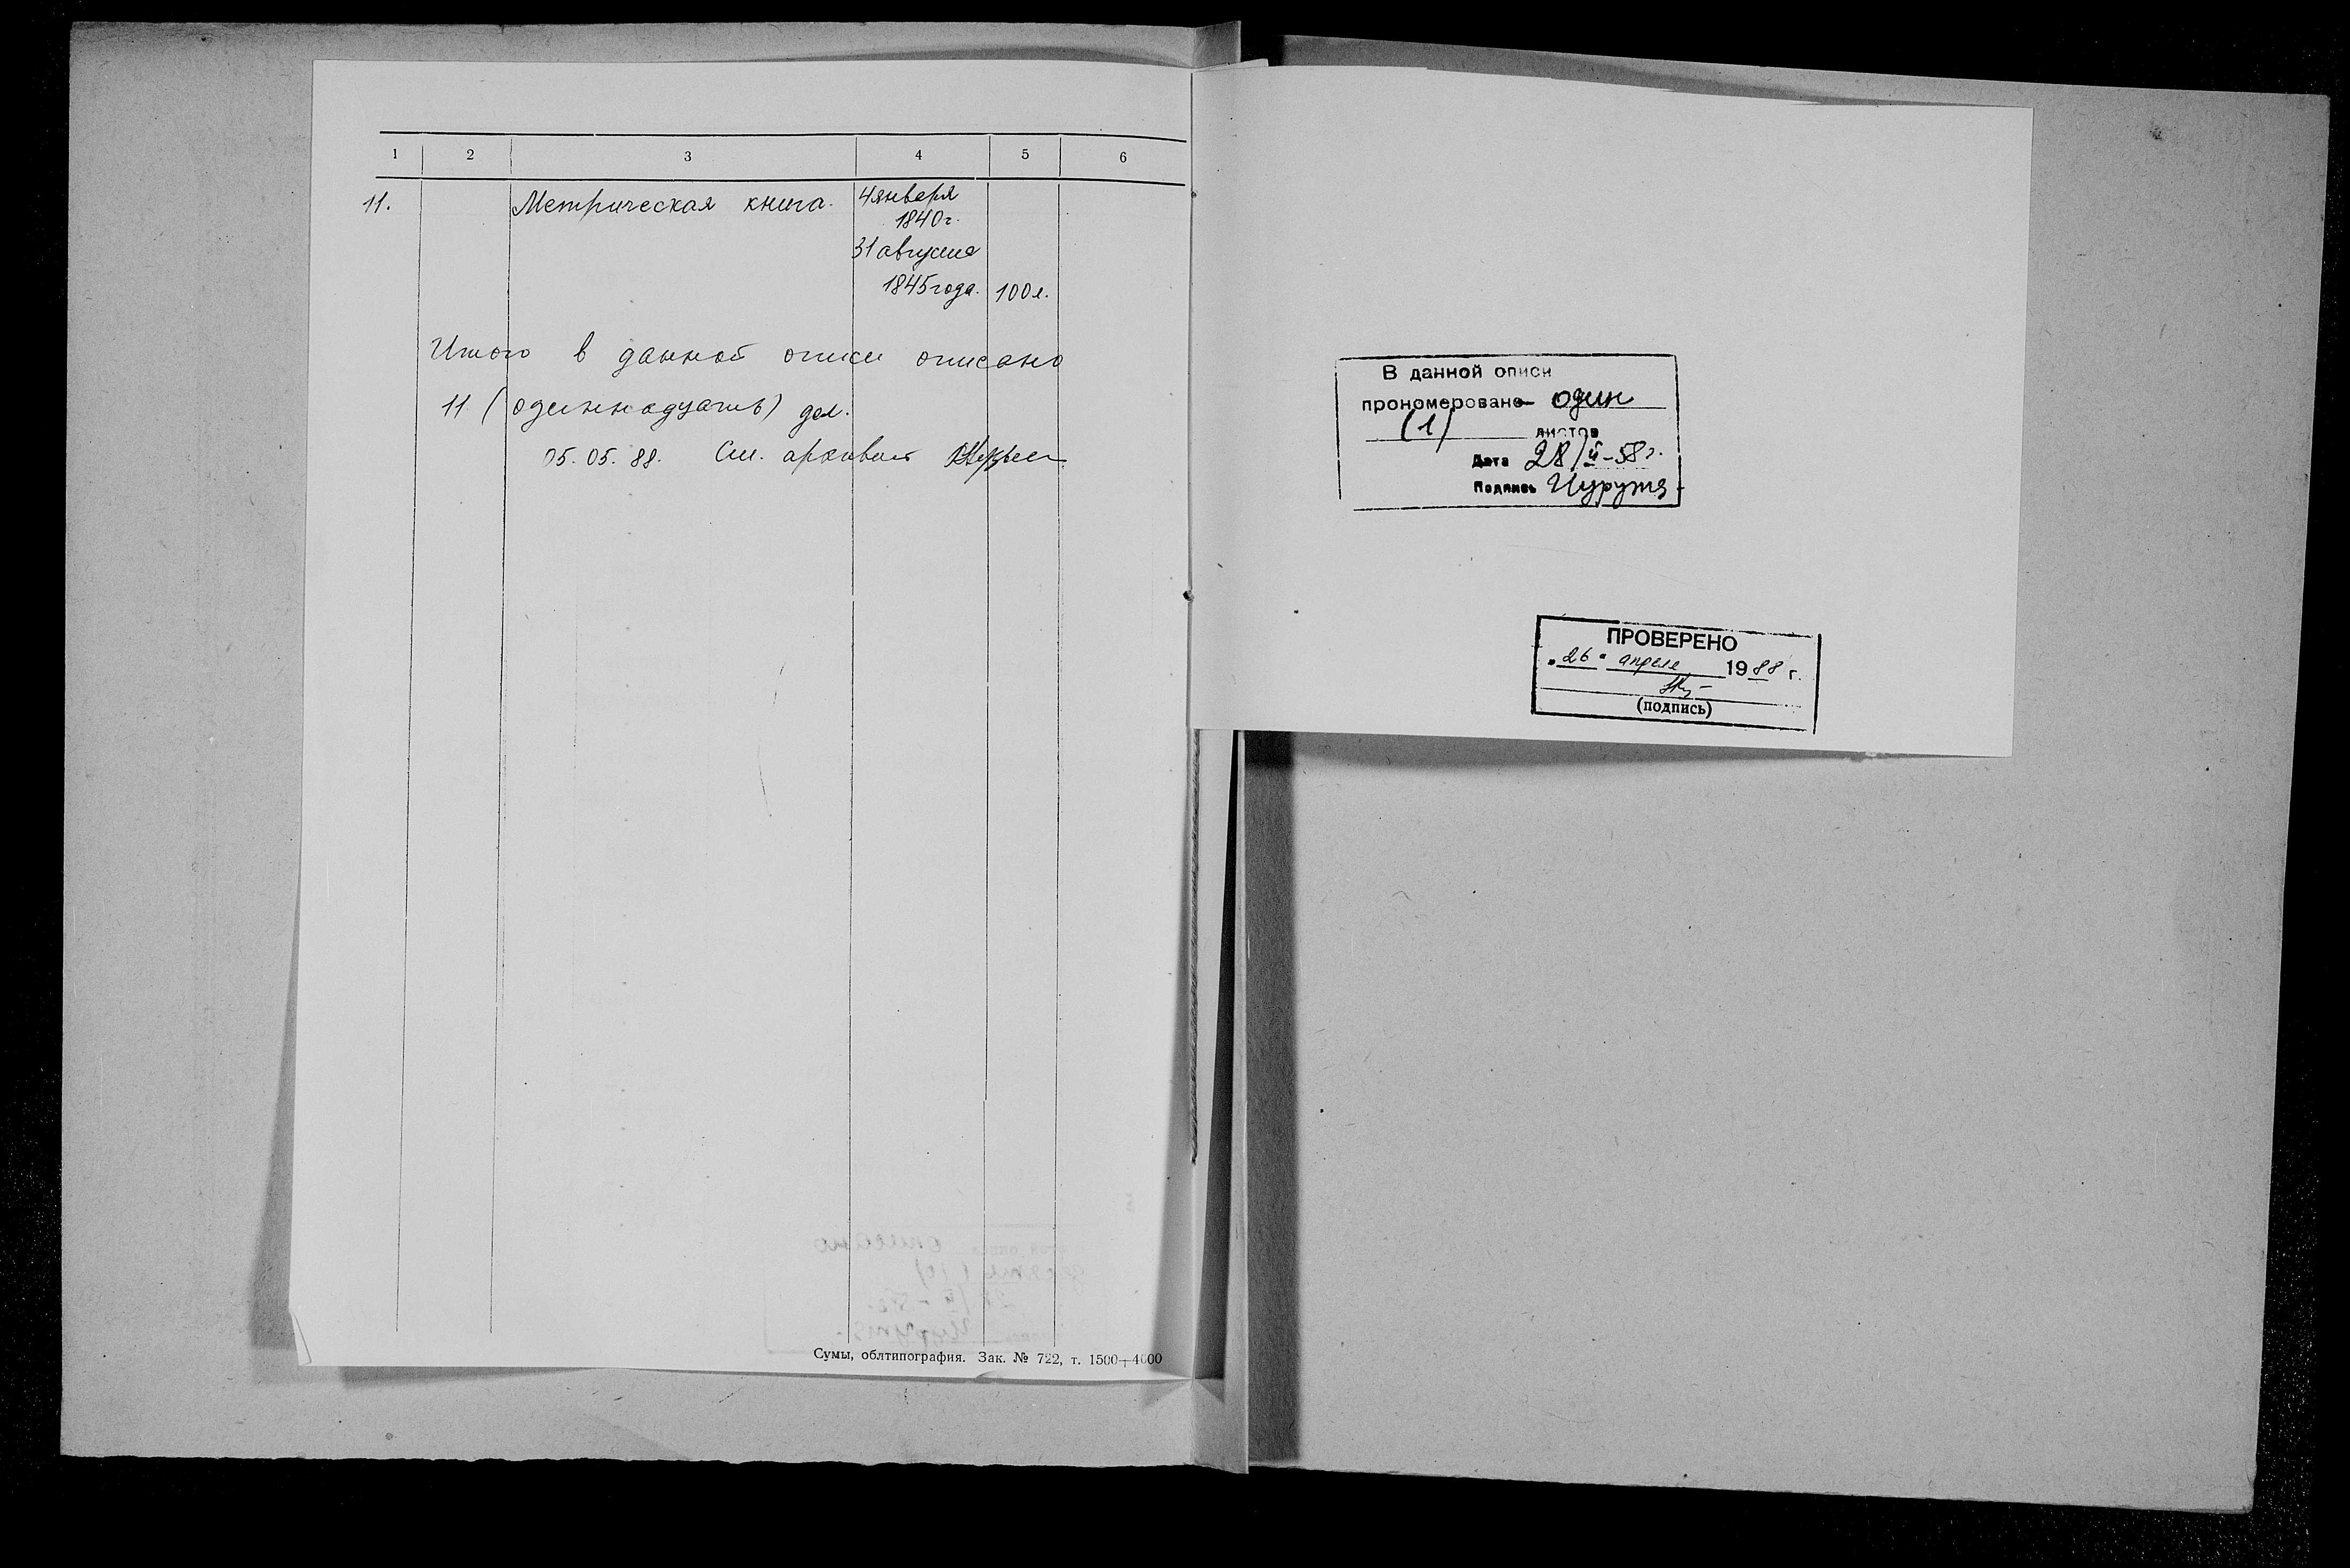 1 2 3 4 5 6
11. Метрическая книга. 4 января
1840 г.
31 августа
1845 года. 100 л.
Итого в данной описи описано
11 (одиннадцать) дел.
05.05.88. Ст. архивист
Сумы, облтипография. Зак. № 722, т. 1500+4000
В данной описи
прономеровано один
(1) листов
Дата 28/II-58 г.
Подпись
ПРОВЕРЕНО
"26" апреля 1988 г.
(подпись)